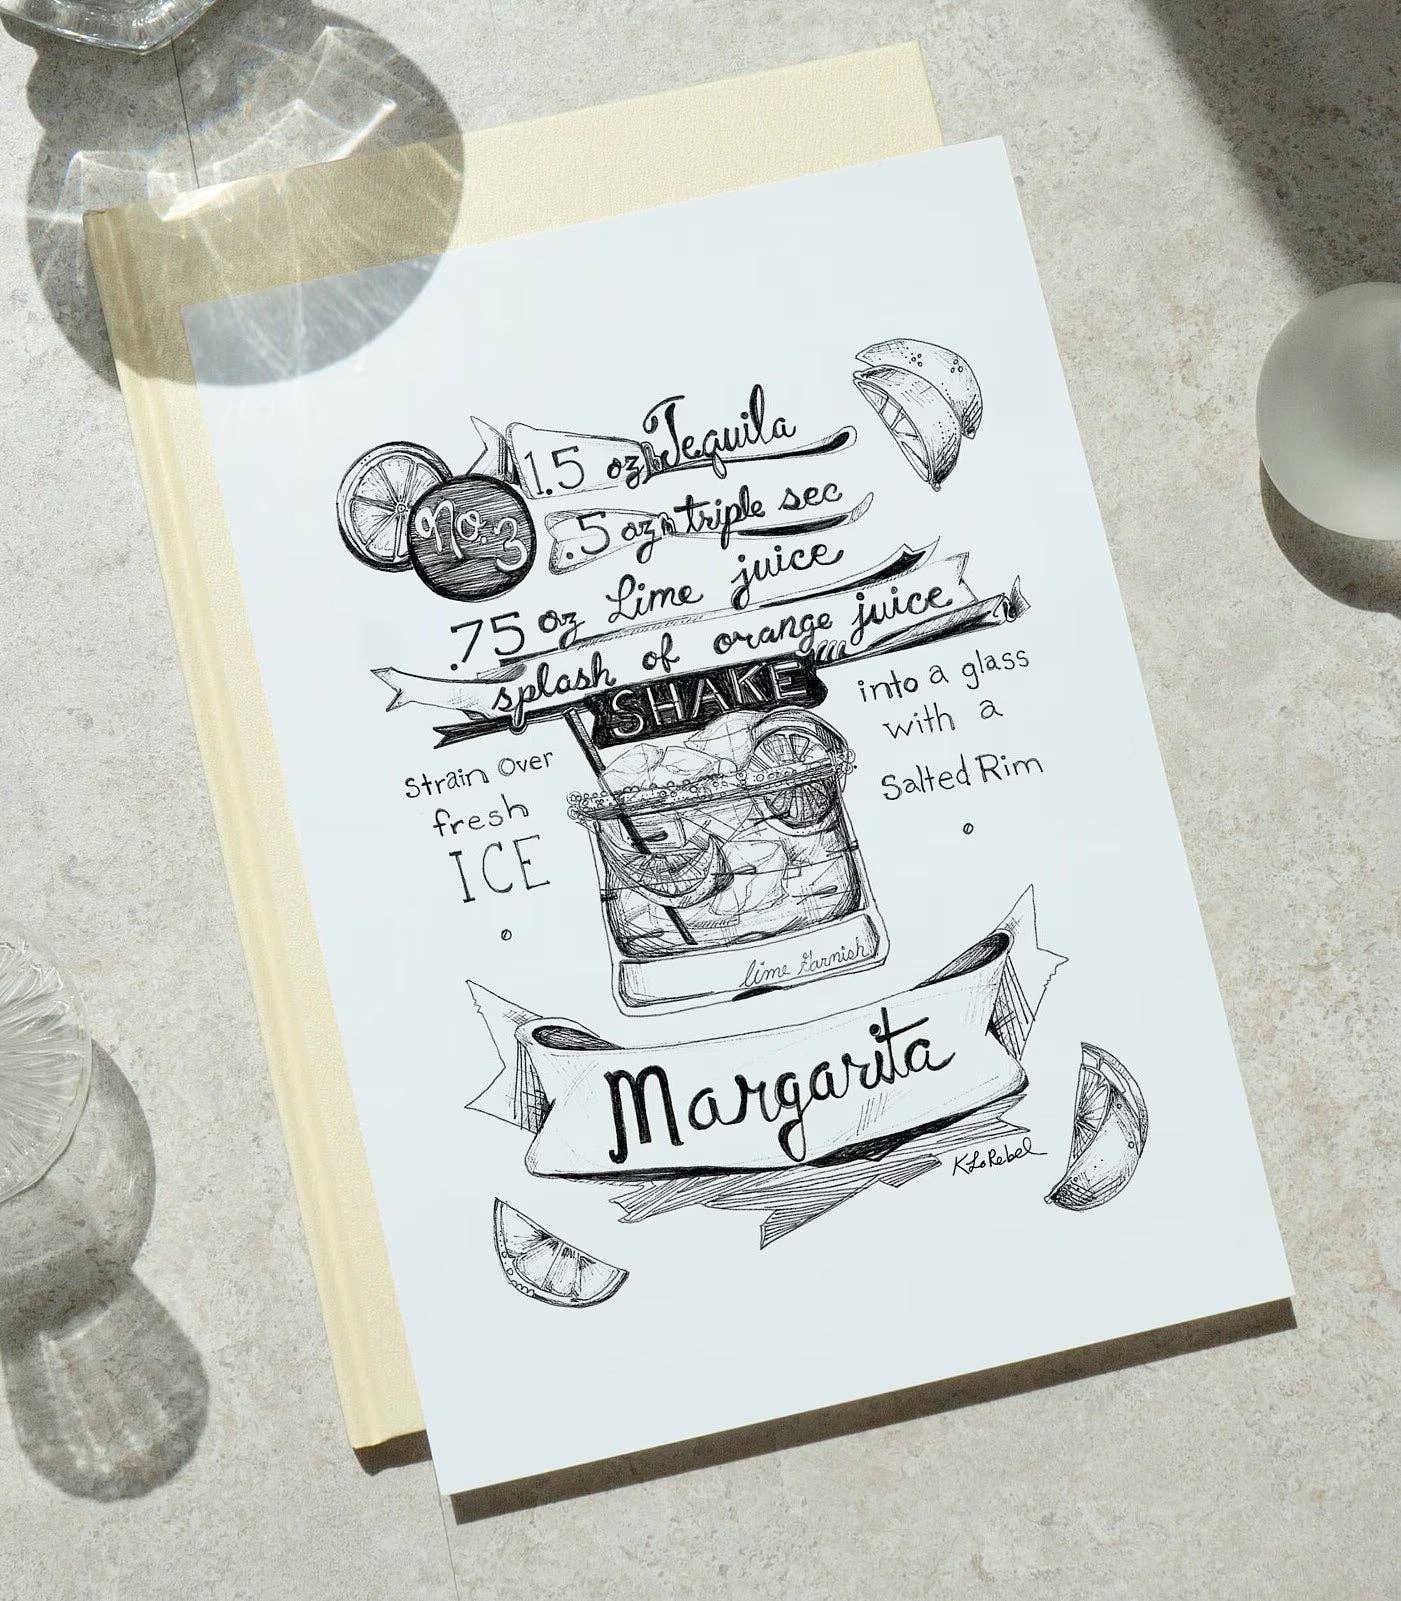 No. 3
1.5 oz Tequila
.5 oz triple sec
.75 oz Lime juice
splash of orange juice
SHAKE
Strain over
fresh
ICE
into a glass
with a
Salted Rim
lime garnish
Margarita
KLoRebel